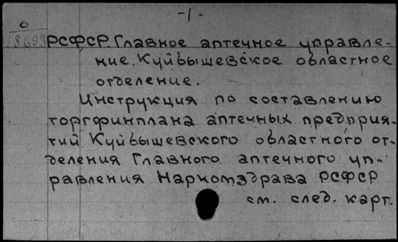 -1-
0
18693
РСФСР. Главное аптечное управле-
ние. Куйбышевское областное
отделение.
Инструкция по составлению
торгфинплана аптечных предприя-
тий Куйбышевского областного от-
деления Главного аптечного уп-
равления Наркомздрава РСФСР
см. след. карт.